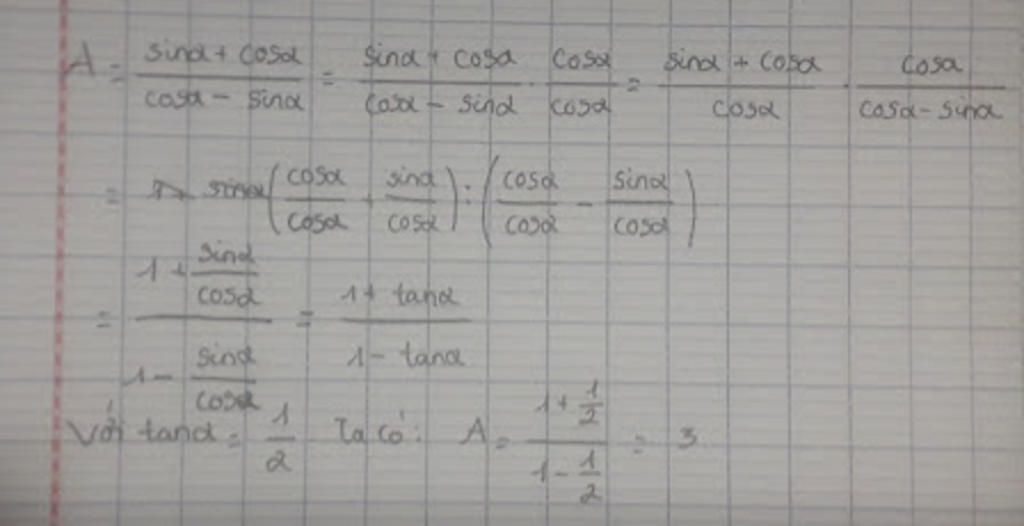 A = (sinα + cosα)/(cosα - sinα) = (sinα + cosα)/(cosα - sinα) · cosα/cosα = (sinα + cosα)/cosα · cosα/(cosα - sinα)
= (cosα/cosα + sinα/cosα) : (cosα/cosα - sinα/cosα)
= (1 + sinα/cosα)/(1 - sinα/cosα) = (1 + tanα)/(1 - tanα)
Với tanα = 1/2 Ta có: A = (1 + 1/2)/(1 - 1/2) = 3